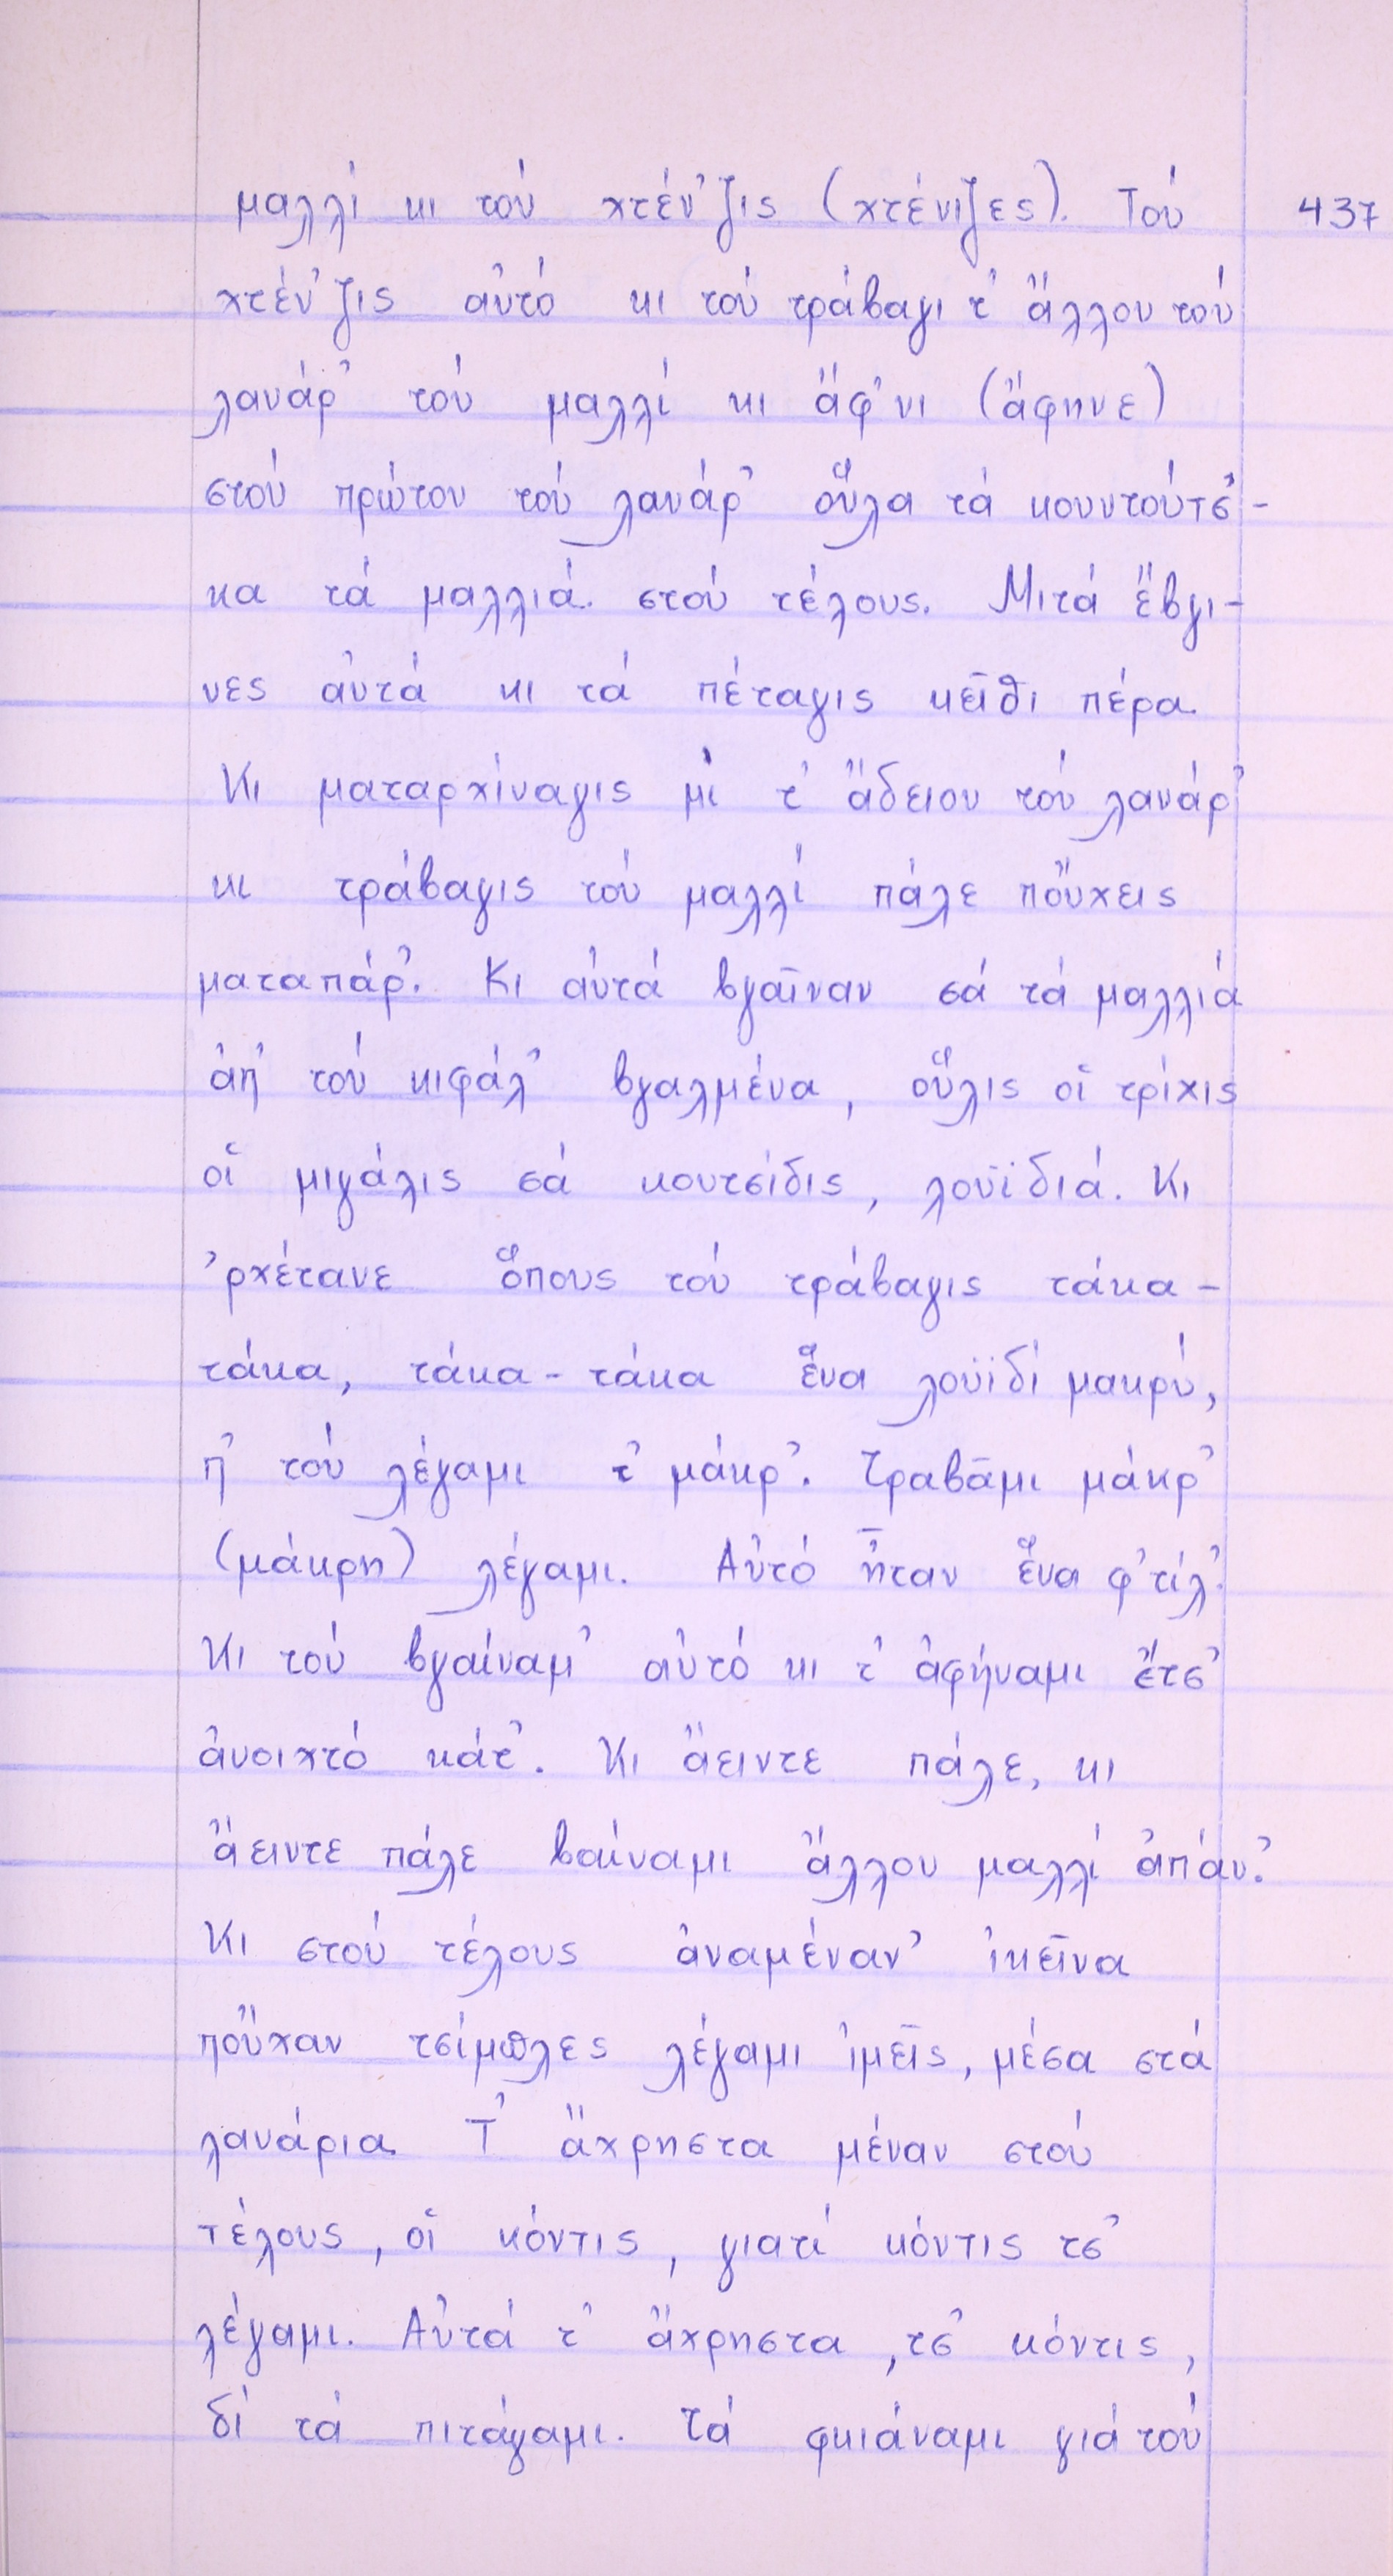 μαλλί κι τού χτέν'ζις (χτένιζες). Τού 437
χτέν'ζις αὐτό κι τού τράβαγι τ' ἄλλου τού
λανάρ' τού μαλλί κι ἄφ'νι (ἄφηνε)
στού πρώτου τού λανάρ' οὕλα τά κουντούτσ'-
κα τά μαλλιά στού τέλους. Μιτά ἔβγι-
νες αὐτά κι τά πέταγις κεῖθι πέρα.
Κι ματαρχίναγις μί τ' ἄδειου τού λανάρ'
κι τράβαγις τού μαλλί πάλε πὄυχεις
ματαπάρ'. Κι αὐτά βγαῖναν σά τά μαλλιά
ἀπ' τού κιφάλ' βγαλμένα, οὕλις οἱ τρίχις
οἱ μιγάλις σά κουτσίδις, λουϊδιά. Κι
'ρχέτανε ὅπους τού τράβαγις τάκα-
τάκα, τάκα-τάκα ἕνα λουϊδί μακρύ,
π' τού λέγαμι τ' μάκρ'. Τραβᾶμι μάκρ'
(μάκρη) λέγαμι. Αὐτό ἦταν ἕνα φ'τίλ'.
Κι τού βγαίναμ' αὐτό κι τ' ἀφήναμι ἔτσ'
ἀνοιχτό κάτ'. Κι ἄειντε πάλε, κι
ἄειντε πάλε βαίναμι ἄλλου μαλλί ἀπάν'.
Κι στού τέλους ἀναμέναν' ἰκεῖνα
πού̓χαν τσίμπλες λέγαμι ἰμεῖς, μέσα στά
λανάρια. Τ' ἄχρηστα μέναν στού
τέλους, οἱ κόντις, γιατί κόντις τσ'
λέγαμι. Αὐτά τ' ἄχρηστα, τσ' κόντις,
δί τά πιτάγαμι. Τά φκιάναμι γιά τού